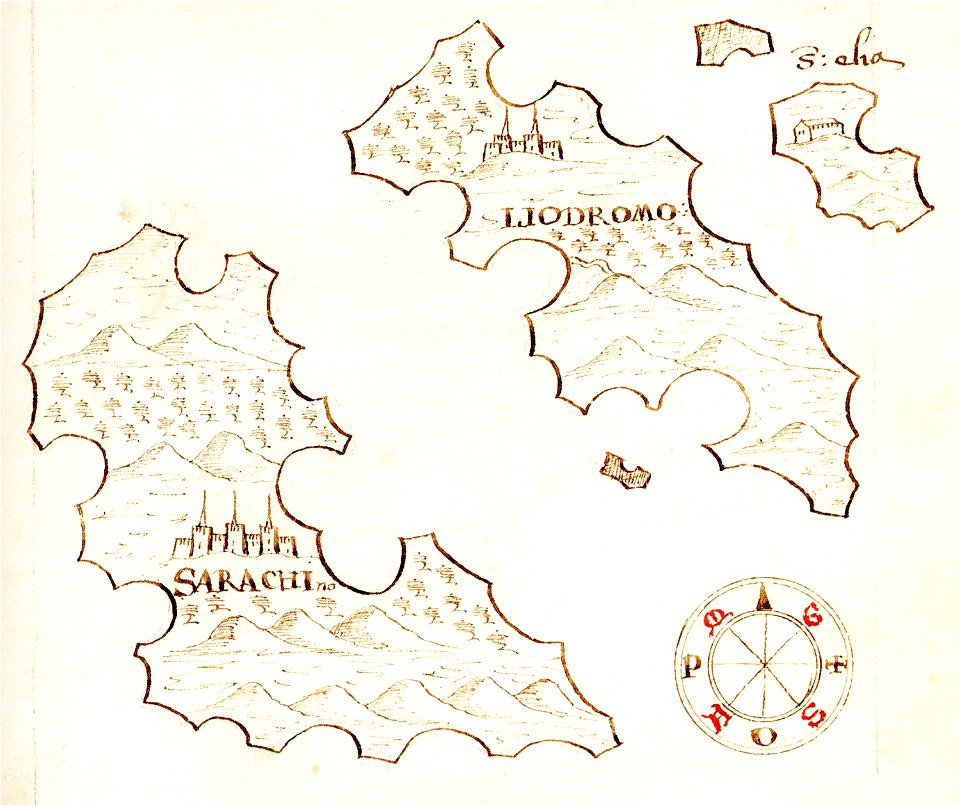 S: elia
LIODROMO
SARACHIno
M G
P
A S
O